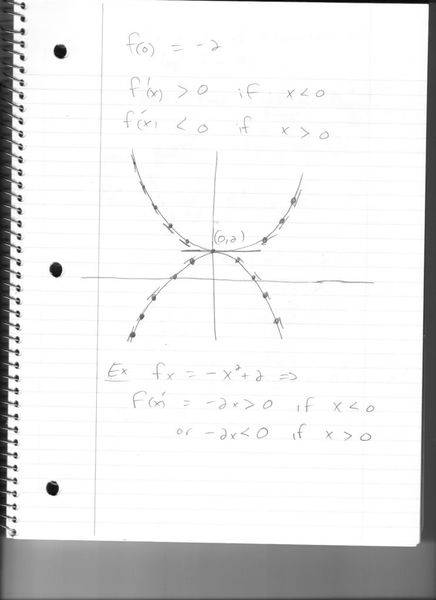 f(0) = -2
f'(x) > 0 if x < 0
f'(x) < 0 if x > 0
(0,2)
Ex fx = -x²+2 ⇒
F(x)' = -2x > 0 if x < 0
or -2x < 0 if x > 0